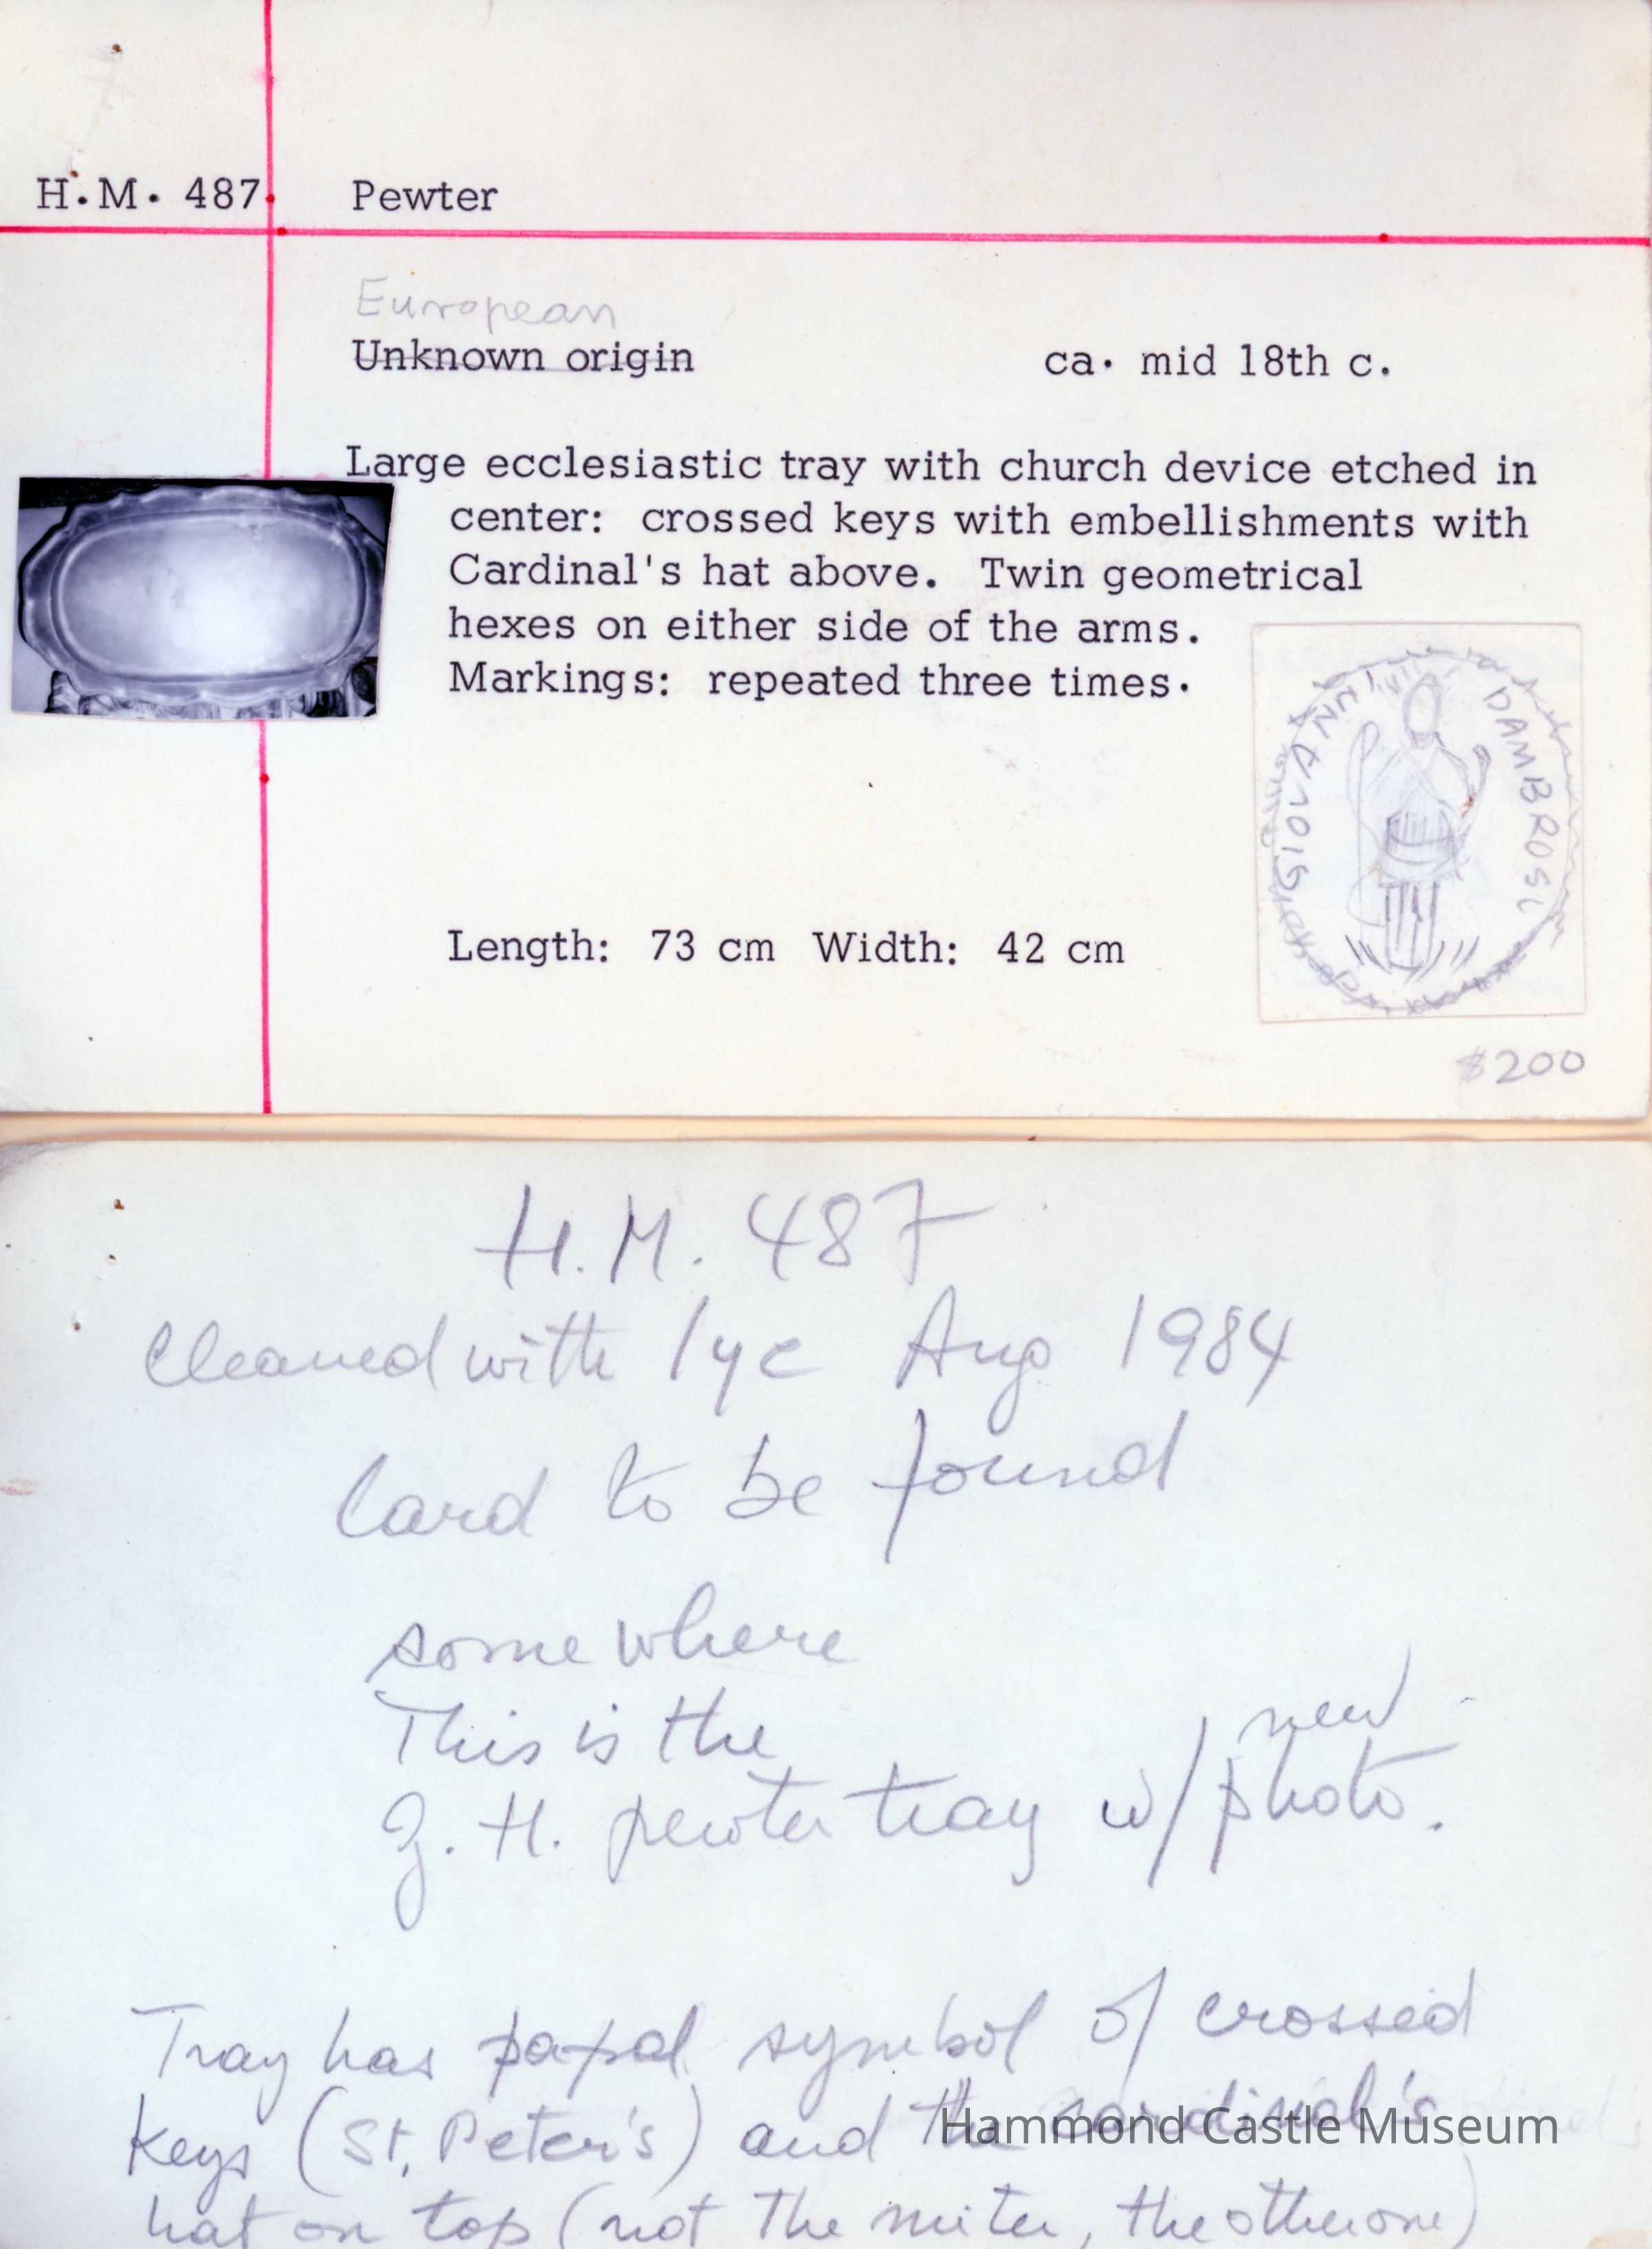 H.M. 487 Pewter
European
Unknown origin ca. mid 18th c.
Large ecclesiastic tray with church device etched in
center: crossed keys with embellishments with
Cardinal's hat above. Twin geometrical
hexes on either side of the arms.
Markings: repeated three times.
DAMBROSI
Length: 73 cm Width: 42 cm
$200
H.M. 487
Cleaned with lye Aug 1984
Card to be found
somewhere
This is the
new
J. H. pewter tray w/ photo.
Tray has papal symbol of crossed
keys (St. Peter's) and the cardinal's
Hammond Castle Museum
hat on top (not the miter, the other one)